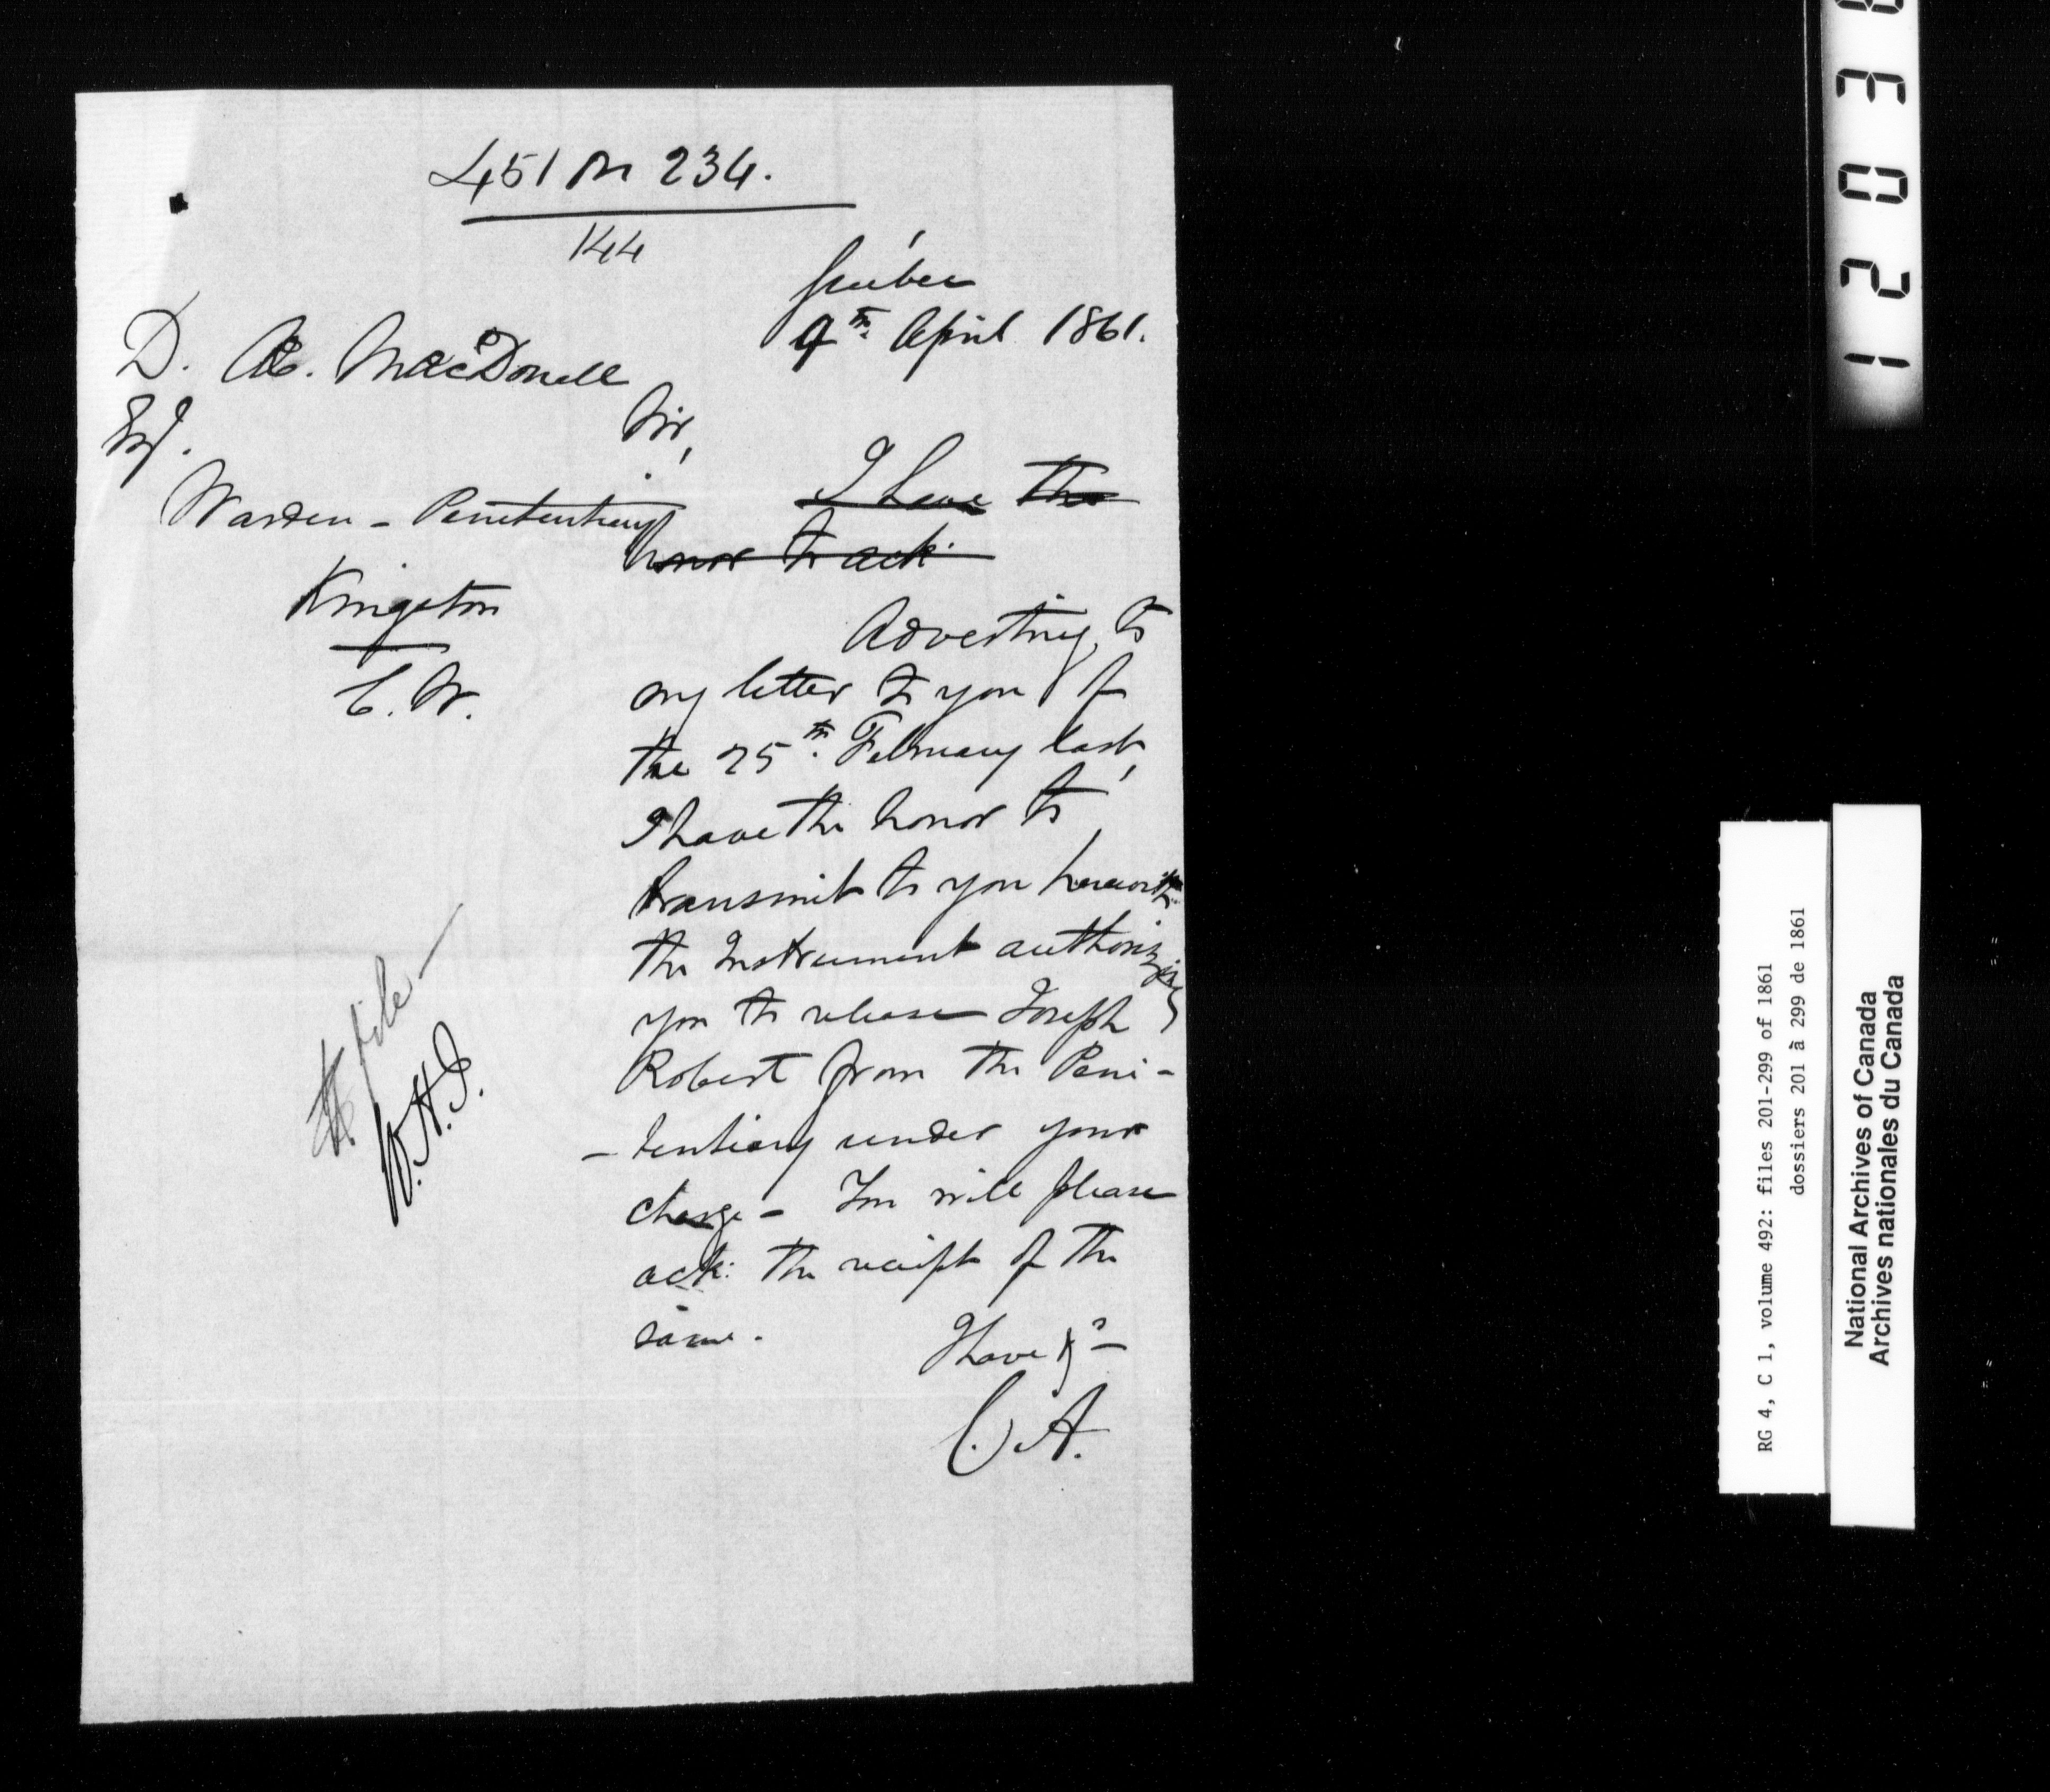 451 on 234.
144
Quebec
9th. April 1861.
D. Æ. MacDonell
Esq.
Warden - Penitentiary
Kingston
C.W.
Sir,
I have the
honor to ack:
Adverting to
my letter to you of
the 25th. February last,
I have the honor to
transmit to you herewith
the Instrument authorizing
you to release Joseph
Robert from the Peni-
-tentiary under your
charge - You will please
ack: the receipt of the
same.
I have &c -
C. A.
To file -
W.H.J.
12038
RG 4, C 1, volume 492: files 201-299 of 1861
dossiers 201 à 299 de 1861
National Archives of Canada
Archives nationales du Canada